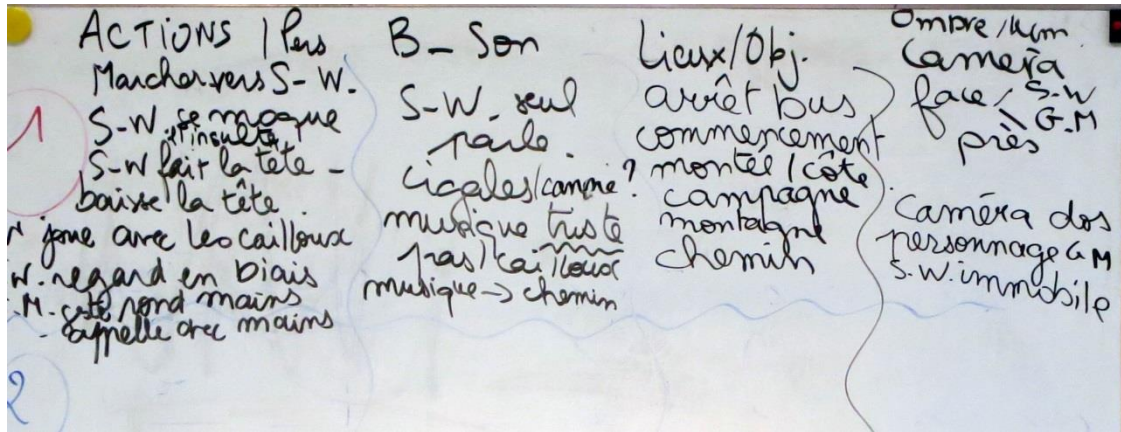 ACTIONS / Pers
Marcher vers S-W.
1
S-W se moque
et insulte
S-W fait la tête -
baisse la tête.
joue avec les cailloux
W. regard en biais
M. rond mains
- appelle avec mains
2
B - Son
S-W seul
parle.
cigales/campne ?
musique triste
pas/cailloux
musique → chemin
Lieux/Obj.
arrêt bus
commencement
montée / côte.
campagne
montagne
chemin
Ombre / lum
Caméra
face / S-W
G.M
près
Caméra dos
personnage G M
S-W. immobile